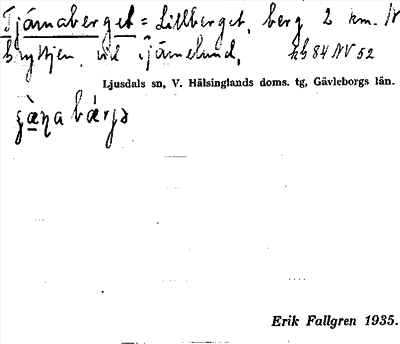 Tjärnaberget = Lillberget, berg 2 km. N
Bryttjen, vid Tjärnelund, kb 84 NV 52
Ljusdals sn, V. Hälsinglands doms. tg, Gävleborgs län.
Erik Fallgren 1935.